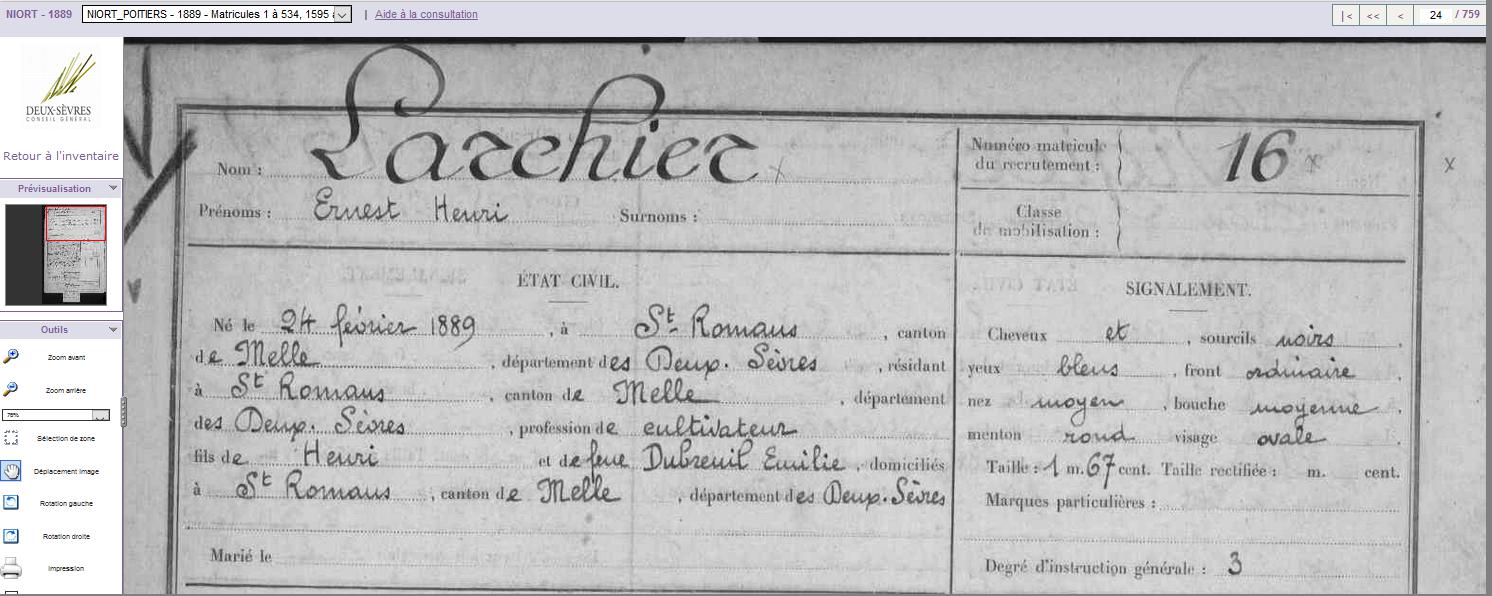 NIORT - 1889 NIORT_POITIERS - 1889 - Matricules 1 à 534, 1595 | Aide à la consultation |< << < 24 / 759
DEUX-SÈVRES
CONSEIL GÉNÉRAL
Retour à l'inventaire
Prévisualisation
Outils
Zoom avant
Zoom arrière
75%
Sélection de zone
Déplacement image
Rotation gauche
Rotation droite
Impression
Nom : Larchier
Prénoms : Ernest Henri Surnoms :
Numéro matricule
du recrutement : 16
Classe
de mobilisation :
ÉTAT CIVIL.
Né le 24 février 1889, à St Romans, canton
de Melle, département des Deux-Sèvres, résidant
à St Romans, canton de Melle, département
des Deux-Sèvres, profession de cultivateur
fils de Henri et de feue Dubreuil Emilie, domiciliés
à St Romans, canton de Melle, département des Deux-Sèvres
Marié le
SIGNALEMENT.
Cheveux et, sourcils noirs,
yeux bleus, front ordinaire,
nez moyen, bouche moyenne,
menton rond visage ovale
Taille : 1 m. 67 cent. Taille rectifiée : m. cent.
Marques particulières :
Degré d'instruction générale : 3